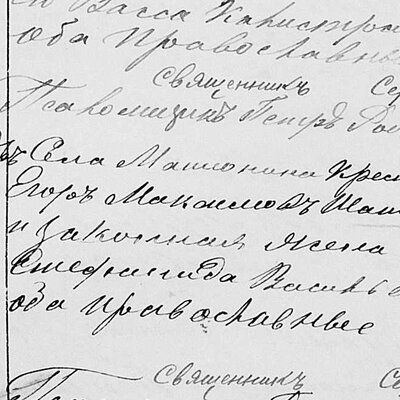 Васса
оба православны
Священникъ
Псаломщикъ Петръ
Села Крес
Егоръ Максимовъ
и законная жена
Стефанида Василье
оба православные
Священникъ